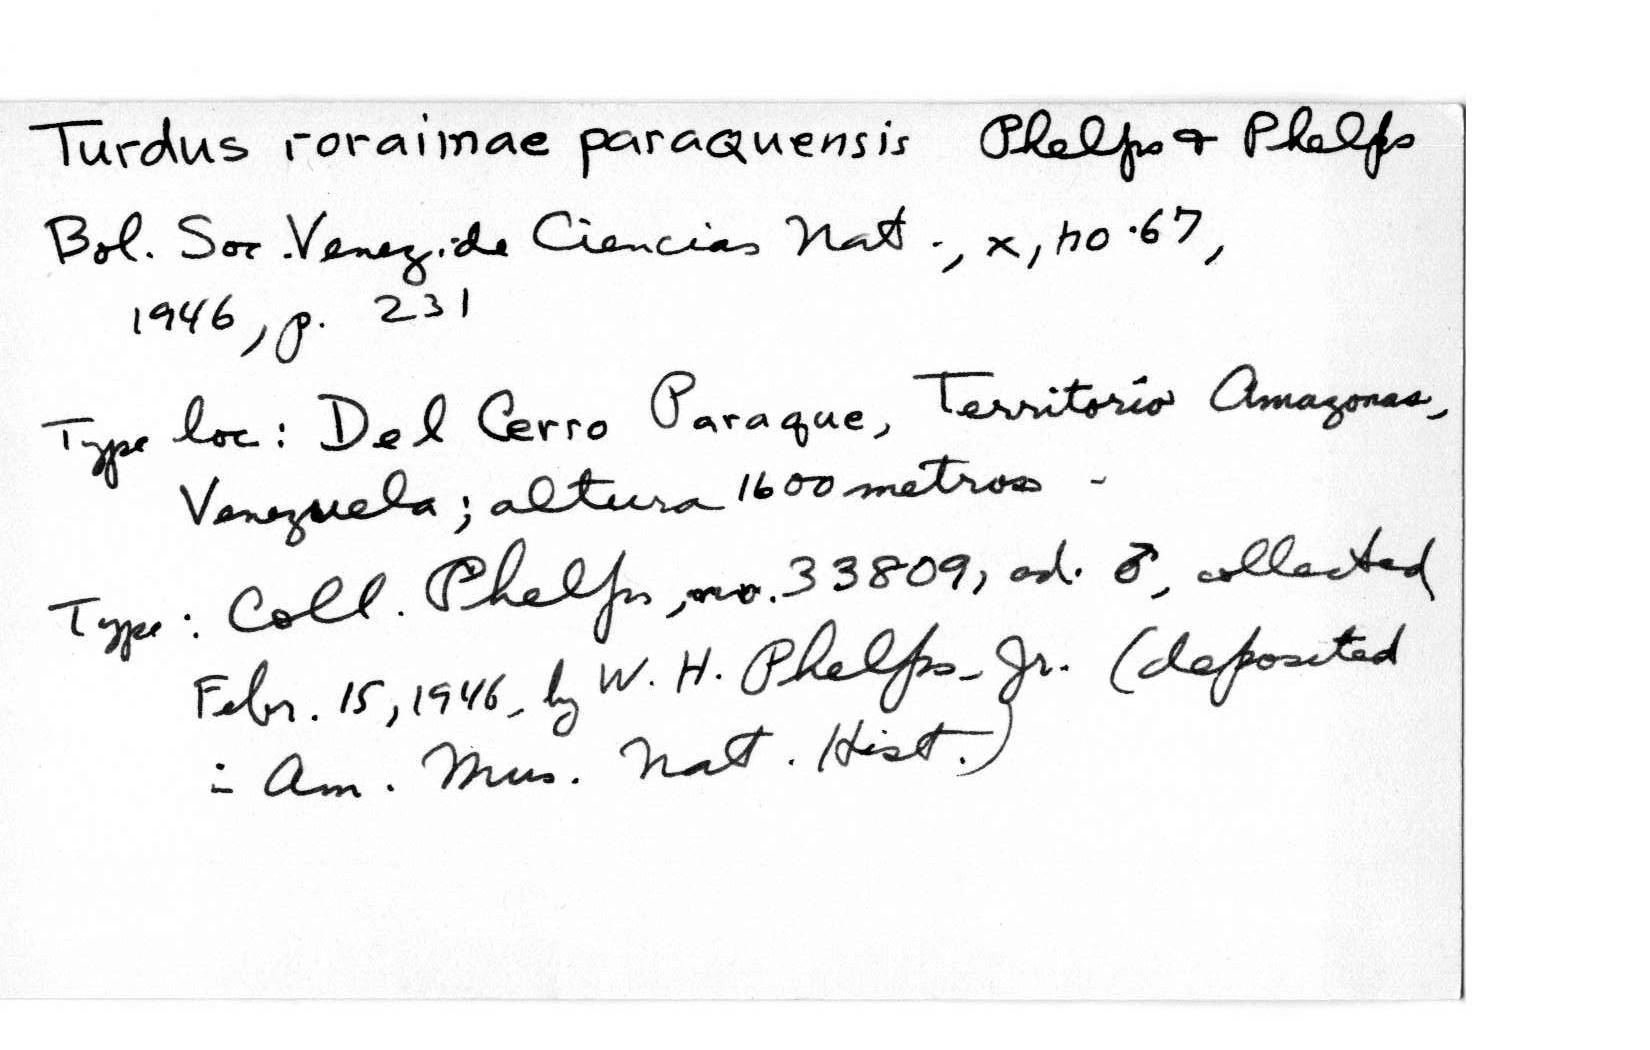 Turdus roraimae paraquensis Phelps & Phelps
Bol. Soc. Venez. de Ciencias Nat., x, no. 67,
1946, p. 231
Type loc: Del Cerro Paraque, Territorio Amazonas,
Venezuela; altura 1600 metros -
Type: Coll. Phelps, no. 33809, ad. ♂, collected
Febr. 15, 1946, by W. H. Phelps, Jr. (deposited
in Am. Mus. Nat. Hist.)